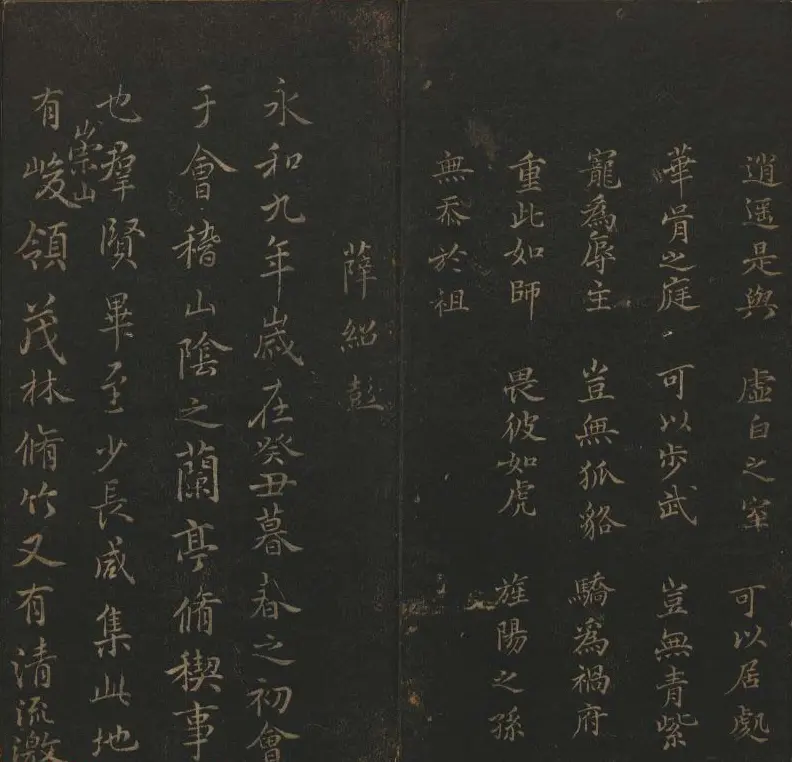 逍遥是與 虛白之室 可以居處
華胥之庭 可以步武 豈無青紫
寵為辱主 豈無狐貉 驕為禍府
重此如師 畏彼如虎 旌陽之孫
無忝於祖
薛紹彭
永和九年歲在癸丑暮春之初會
于會稽山陰之蘭亭脩稧事
也羣賢畢至少長咸集此地
有崇山峻領茂林脩竹又有清流激